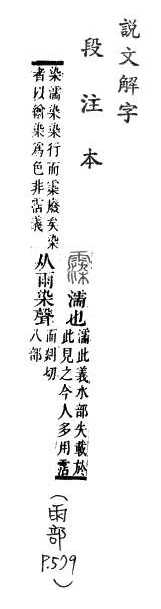 說文解字
段注本
䨬濡也濡此義水部失載於
此見之今人多用霑
染濡染染行而䨬廢矣染
者以繒染爲色非霑義
从雨染聲而剡切
八部
(雨部
P.579)